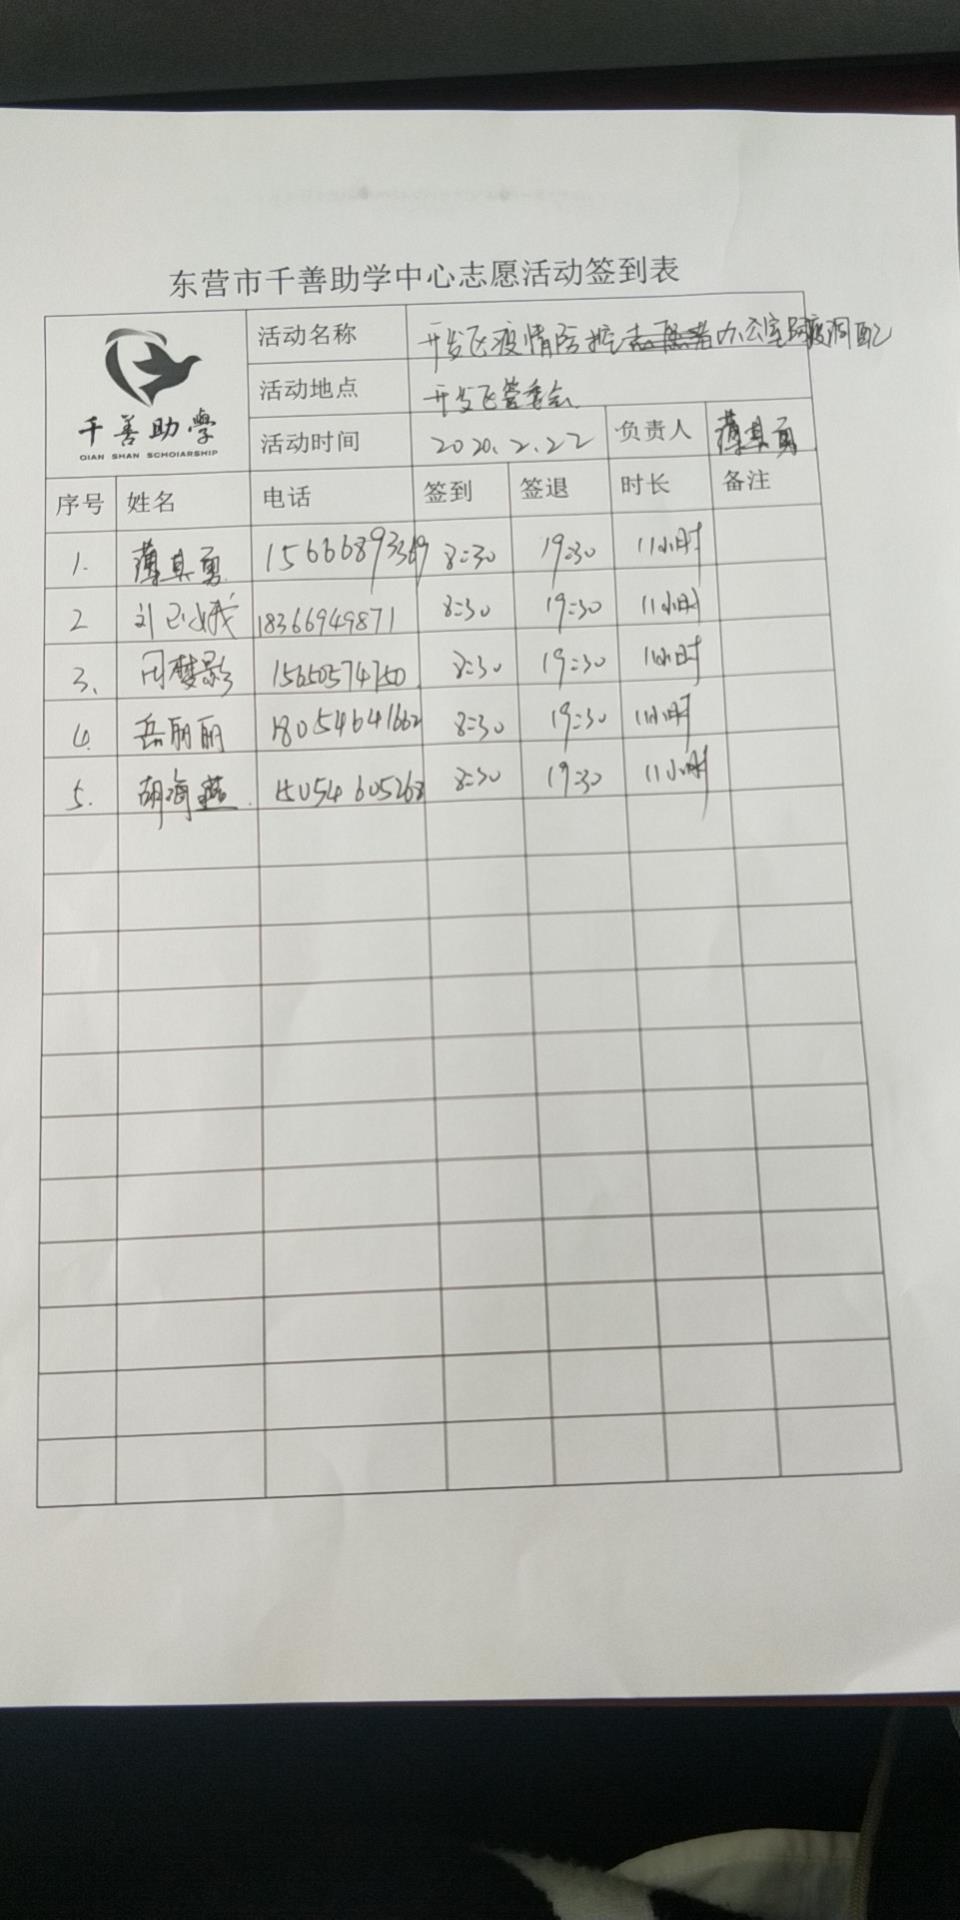 东营市千善助学中心志愿活动签到表
千善助學
QIAN SHAN SCHOIARSHIP
活动名称 开发区疫情防控办公室调配
活动地点 开发区管委会
活动时间 2020.2.22 负责人 薄其勇
序号 姓名 电话 签到 签退 时长 备注
1. 薄其勇 15666893369 8:30 19:30 11小时
2 刘 娥 18366949871 8:30 19:30 11小时
3. 周梦影 15650574750 8:30 19:30 11小时
4. 岳丽丽 18054641662 8:30 19:30 11小时
5. 胡海燕 15054605268 8:30 19:30 11小时